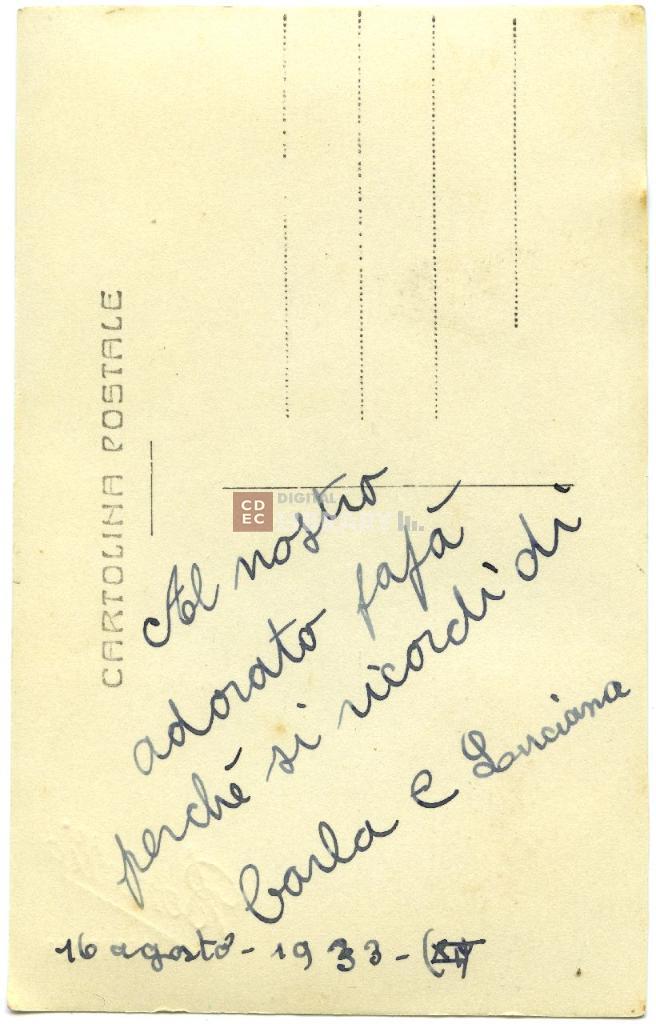 CARTOLINA POSTALE
CD
EC
DIGITAL
LIBRARY
Al nostro
adorato fafà
perchè si ricordi di
Carla e Luciana
16 agosto - 1933 -